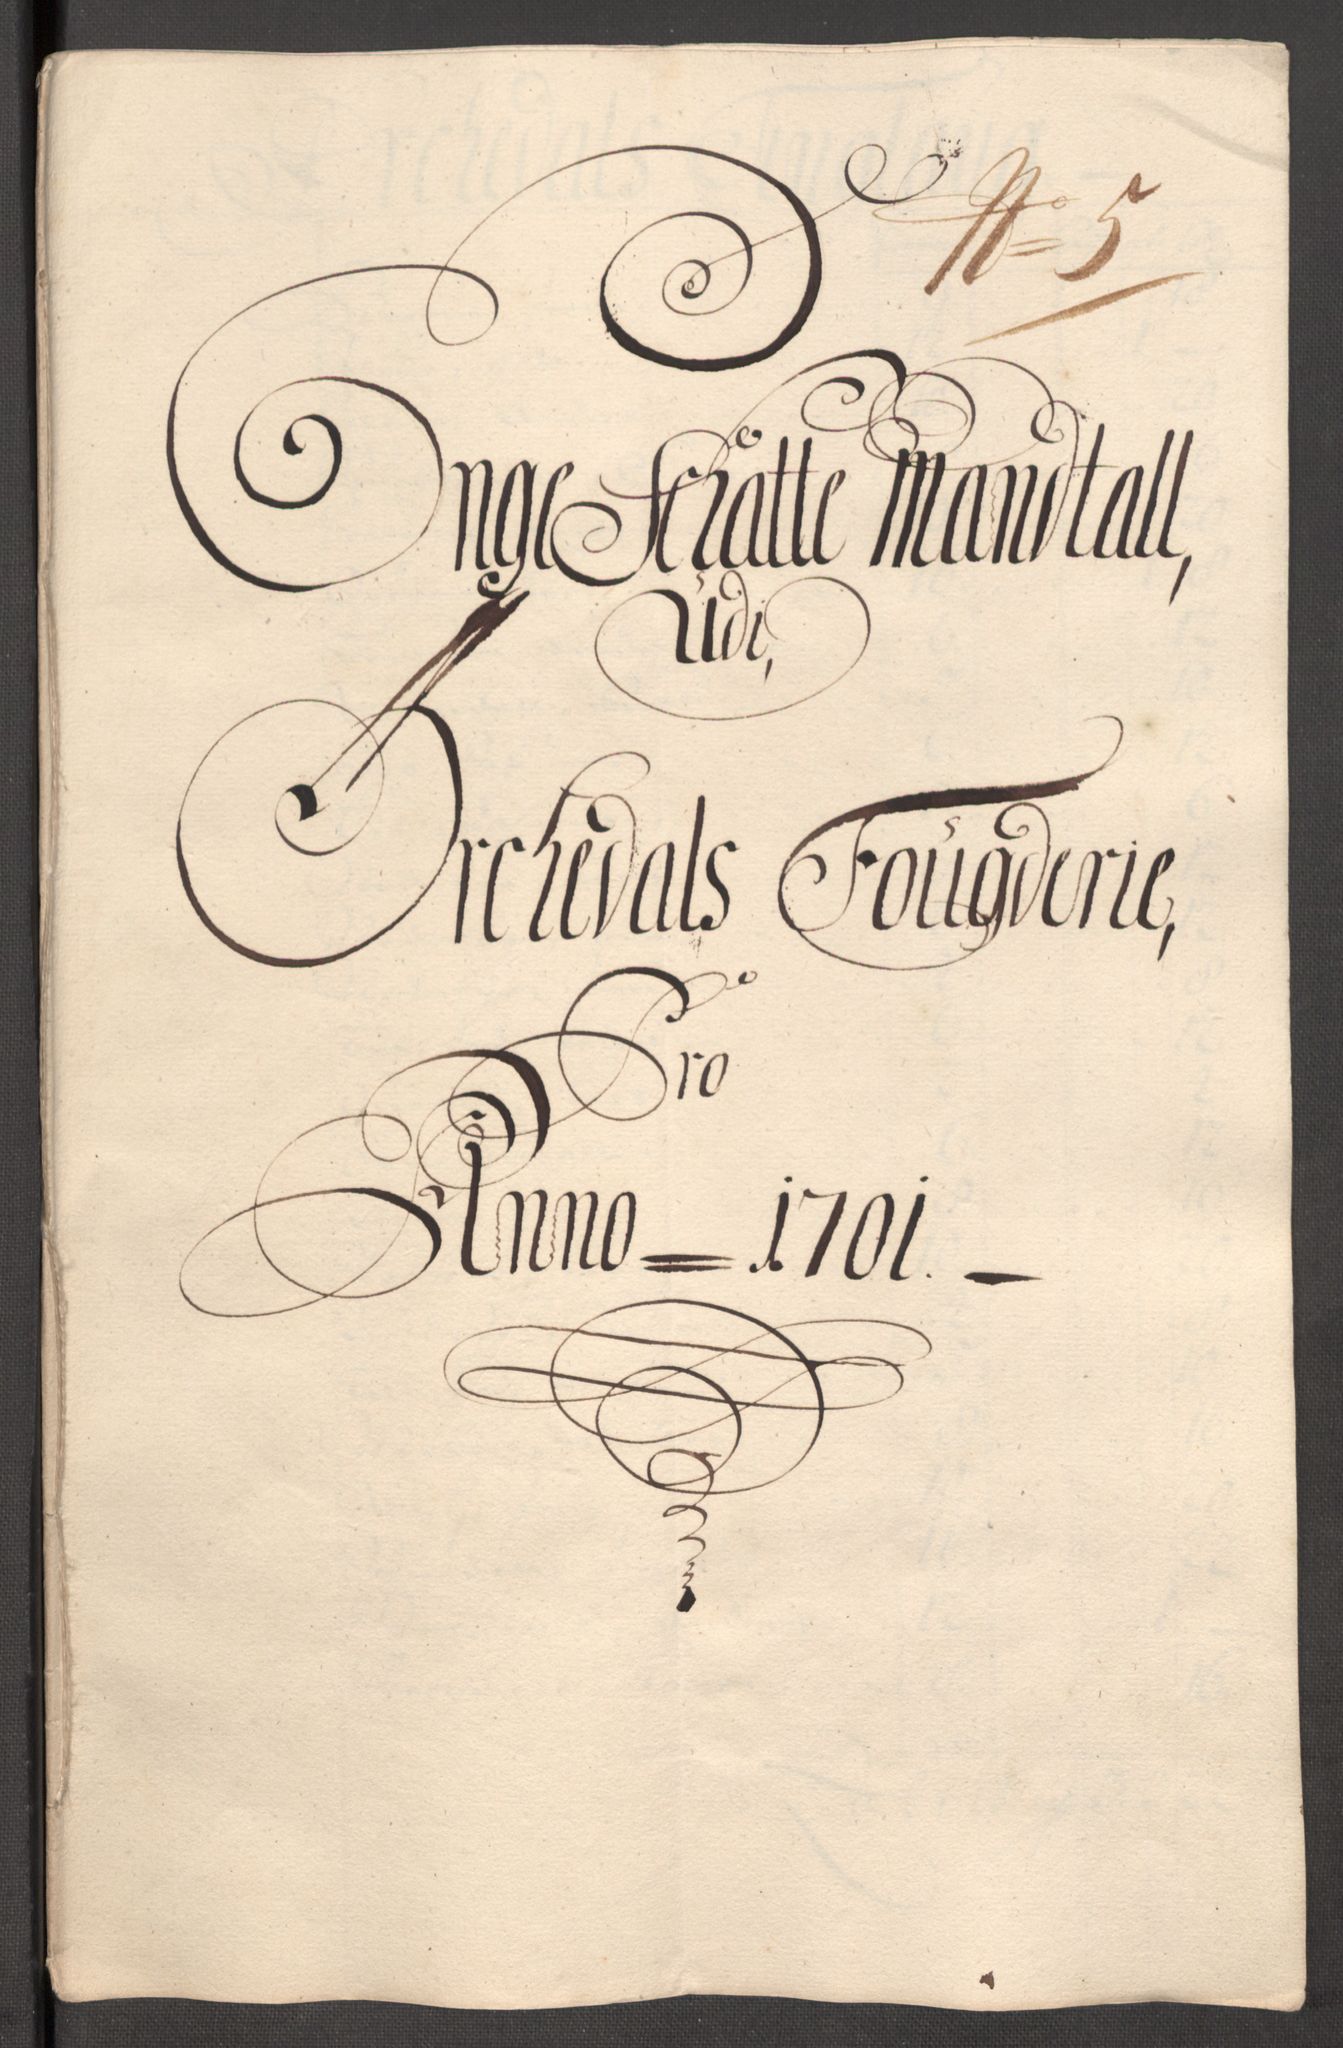 No 5
Unge Schatte Mandtall,
Udi,
Orchedals Fougderie,
Pro
Anno = 1701. –